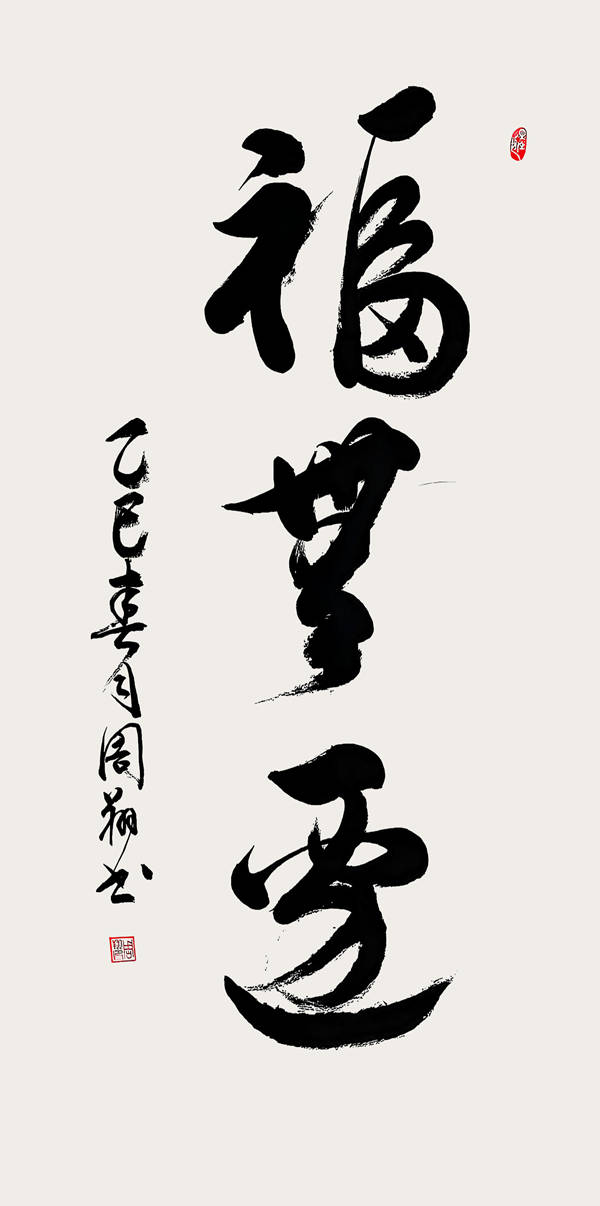 福無邊
乙巳春月周翔书